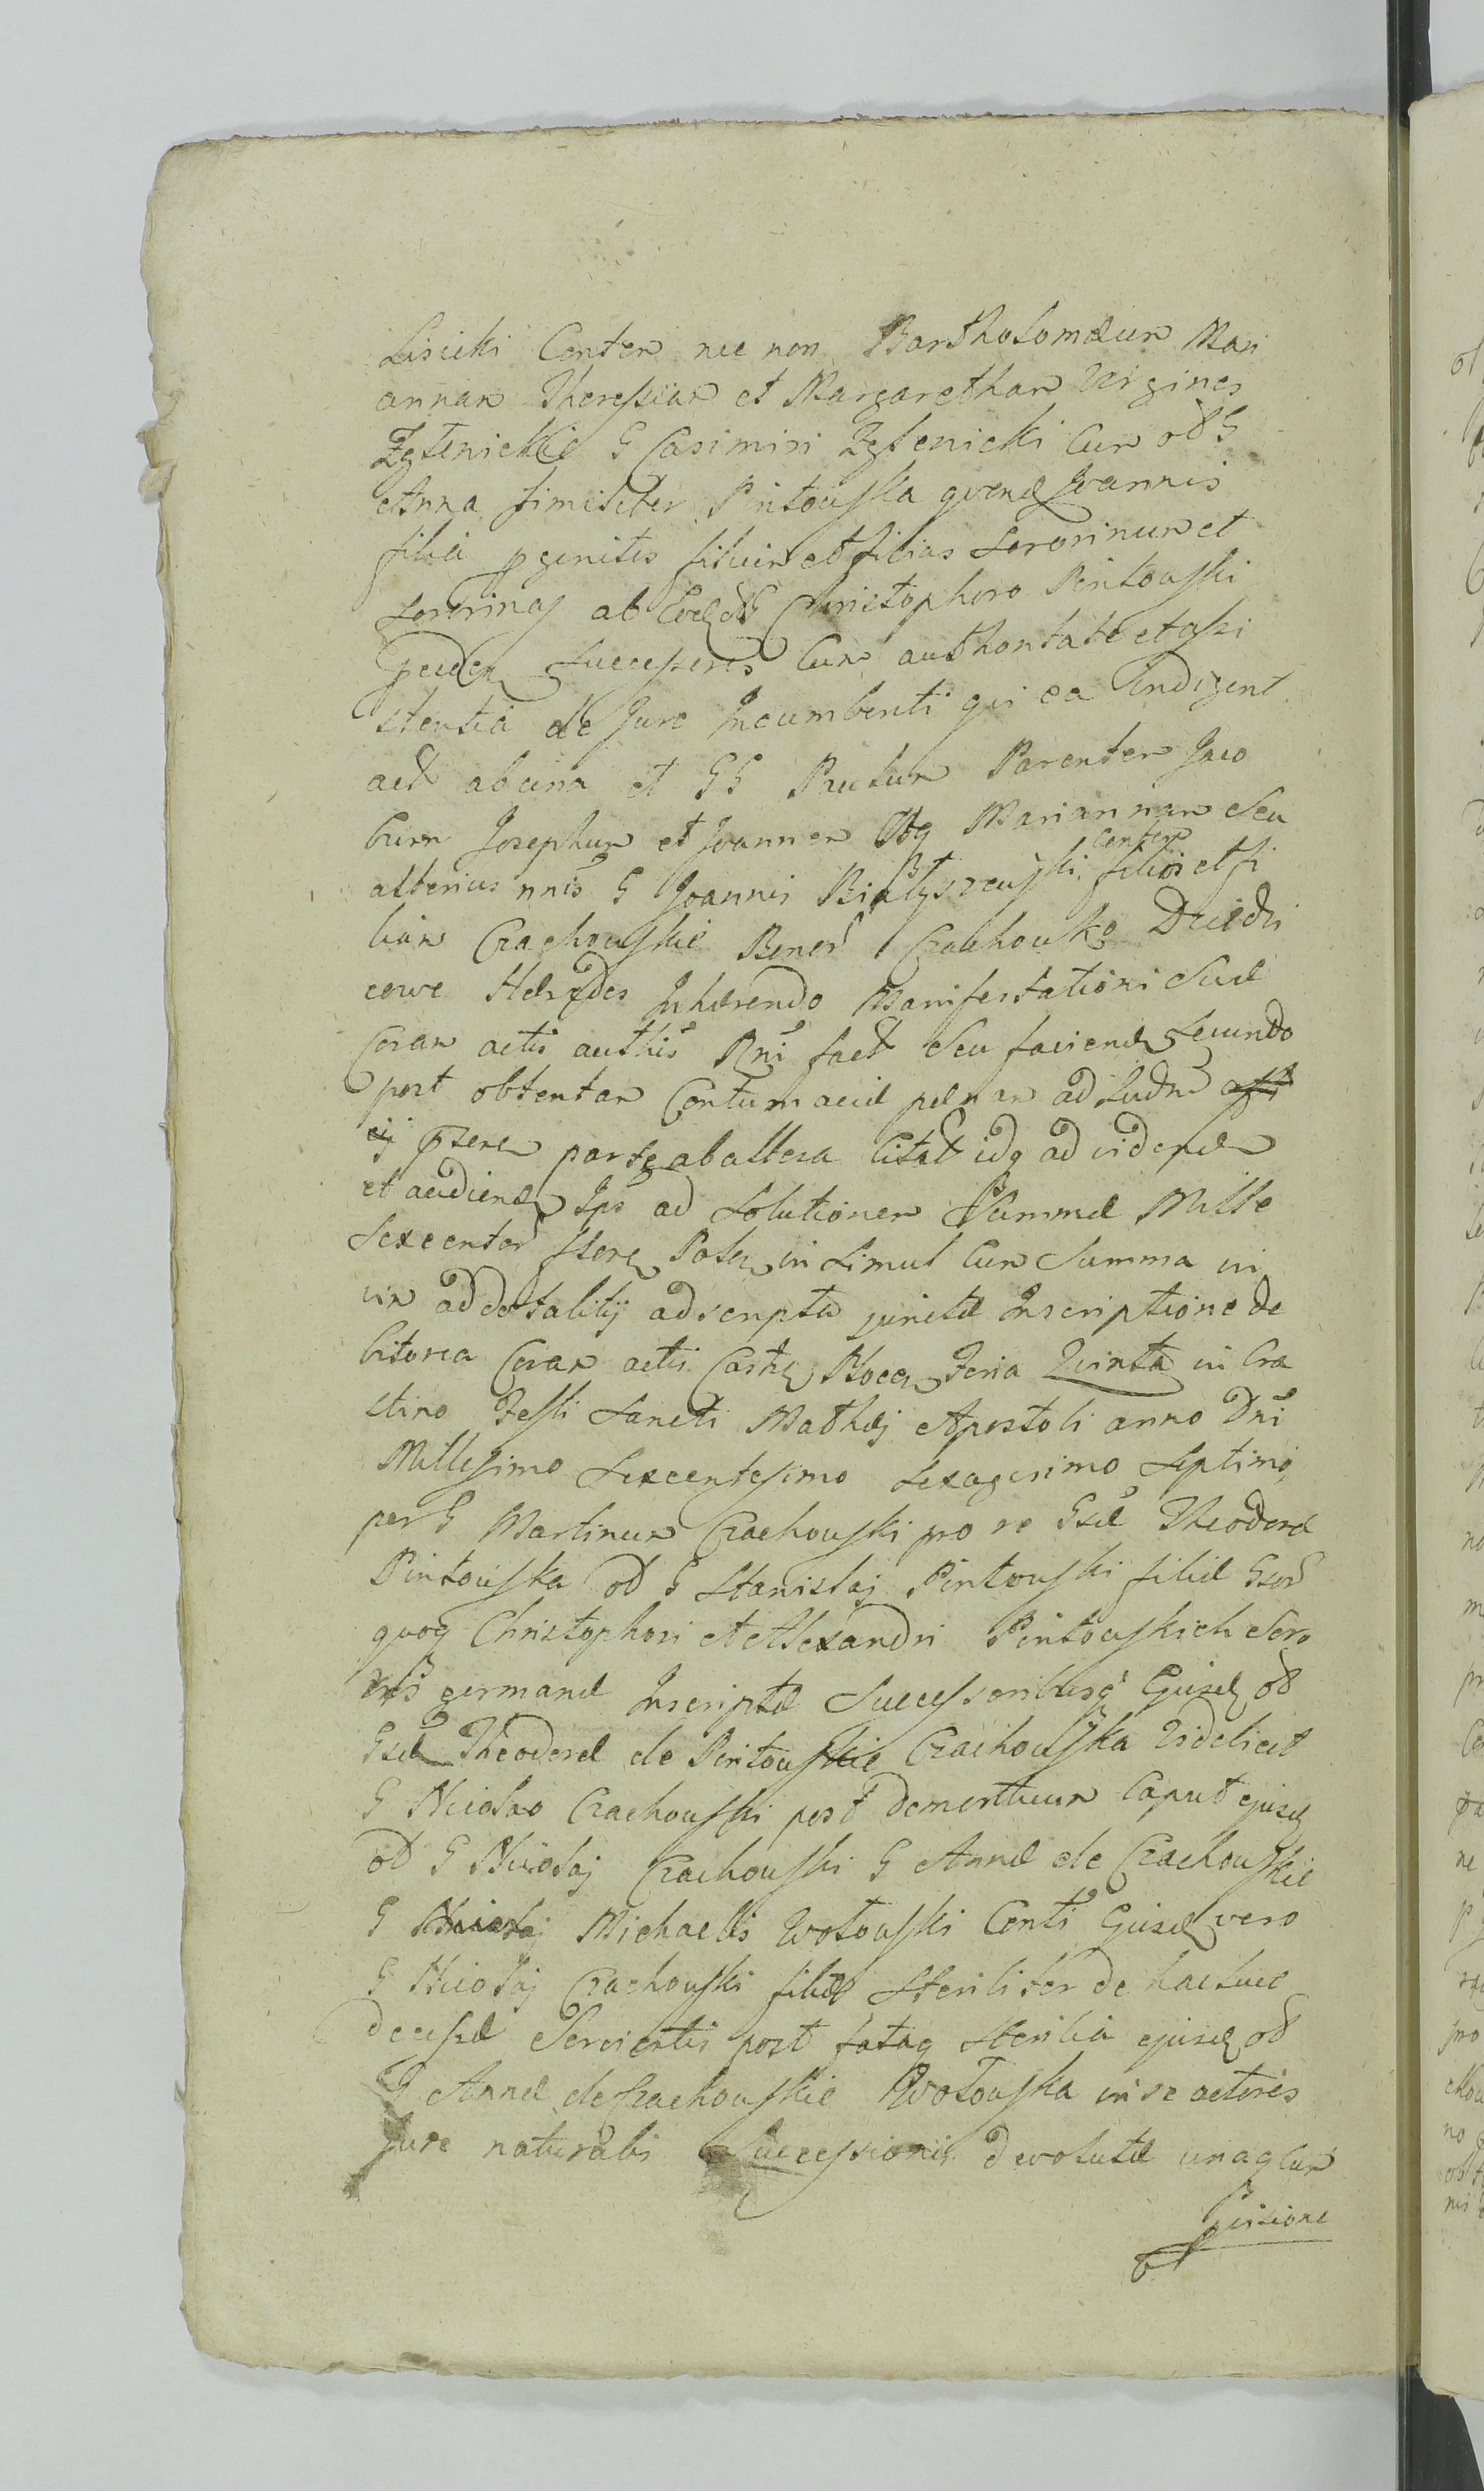 Lisicki Conten nec non Bartholomæum Mari
annam Theressiam et Margaretham Virgines
Zglenickie G Casimiri Zglenicki cum od G
Anna similiter Pintowska Joannis
filia pgenitos filium et filias Sororinum et
Sororinas ab od G Christophoro Pintowski
Successores cum authoritate et assi
stentia de Jure Incumbenti qui ea Indigent
act ab una et GG Paulum Parentem Jaco
bum Josephum et Joannem Mariannam seu
alterius nnis G Joannis Białyszewski Conten filios et fi
liam Czachowskie Bonor Czachowko Dziedzi
cowe Hæredes Inhærendo Manifestationi Suæ
Coram actis authis Rni fact Seu faciend Secundo
post obtentam Contumaciæ pænam ad Judm
parte ab altera Citat idq ad vidend
et audiend Ips ad Solutionem Summæ Mille
Sexcentor flore Polon in Simul cum Summa in
vim addotalitij adscripta junctæ Inscriptione de
bitoria Coram actis Castr Feria Quinta in Cra
stino Festi Sancti Mathæj Apostoli anno Dni
Millesimo Sexcentesimo Sexagesimo Septimo
per G Martinum Czachowski pro re Gsæ Theodoræ
Pintowska od G Stanislaj Pintowski filiæ Gsor
quoq Christophori et Alexandri Pintowskich Soro
ris germanæ Inscriptæ Successoribusq Ejusd od
Gsæ Theodoræ de Pintowskie Czachowska Videlicet
G Nicolao Czachowski post demortuum Caput ejusd
od G Nicolaj Czachowski G Annæ de Czachowskie
G Michaelis Wołowski Conti Ejusd vero
G Nicolaj Czachowski filiæ Steriliter de hac luce
decessæ Servientis post fataq Sterilia ejusd od
G Annæ de Czachowskie Wołowska in se actores
Jure naturalis Successionis devolutæ unaq cum